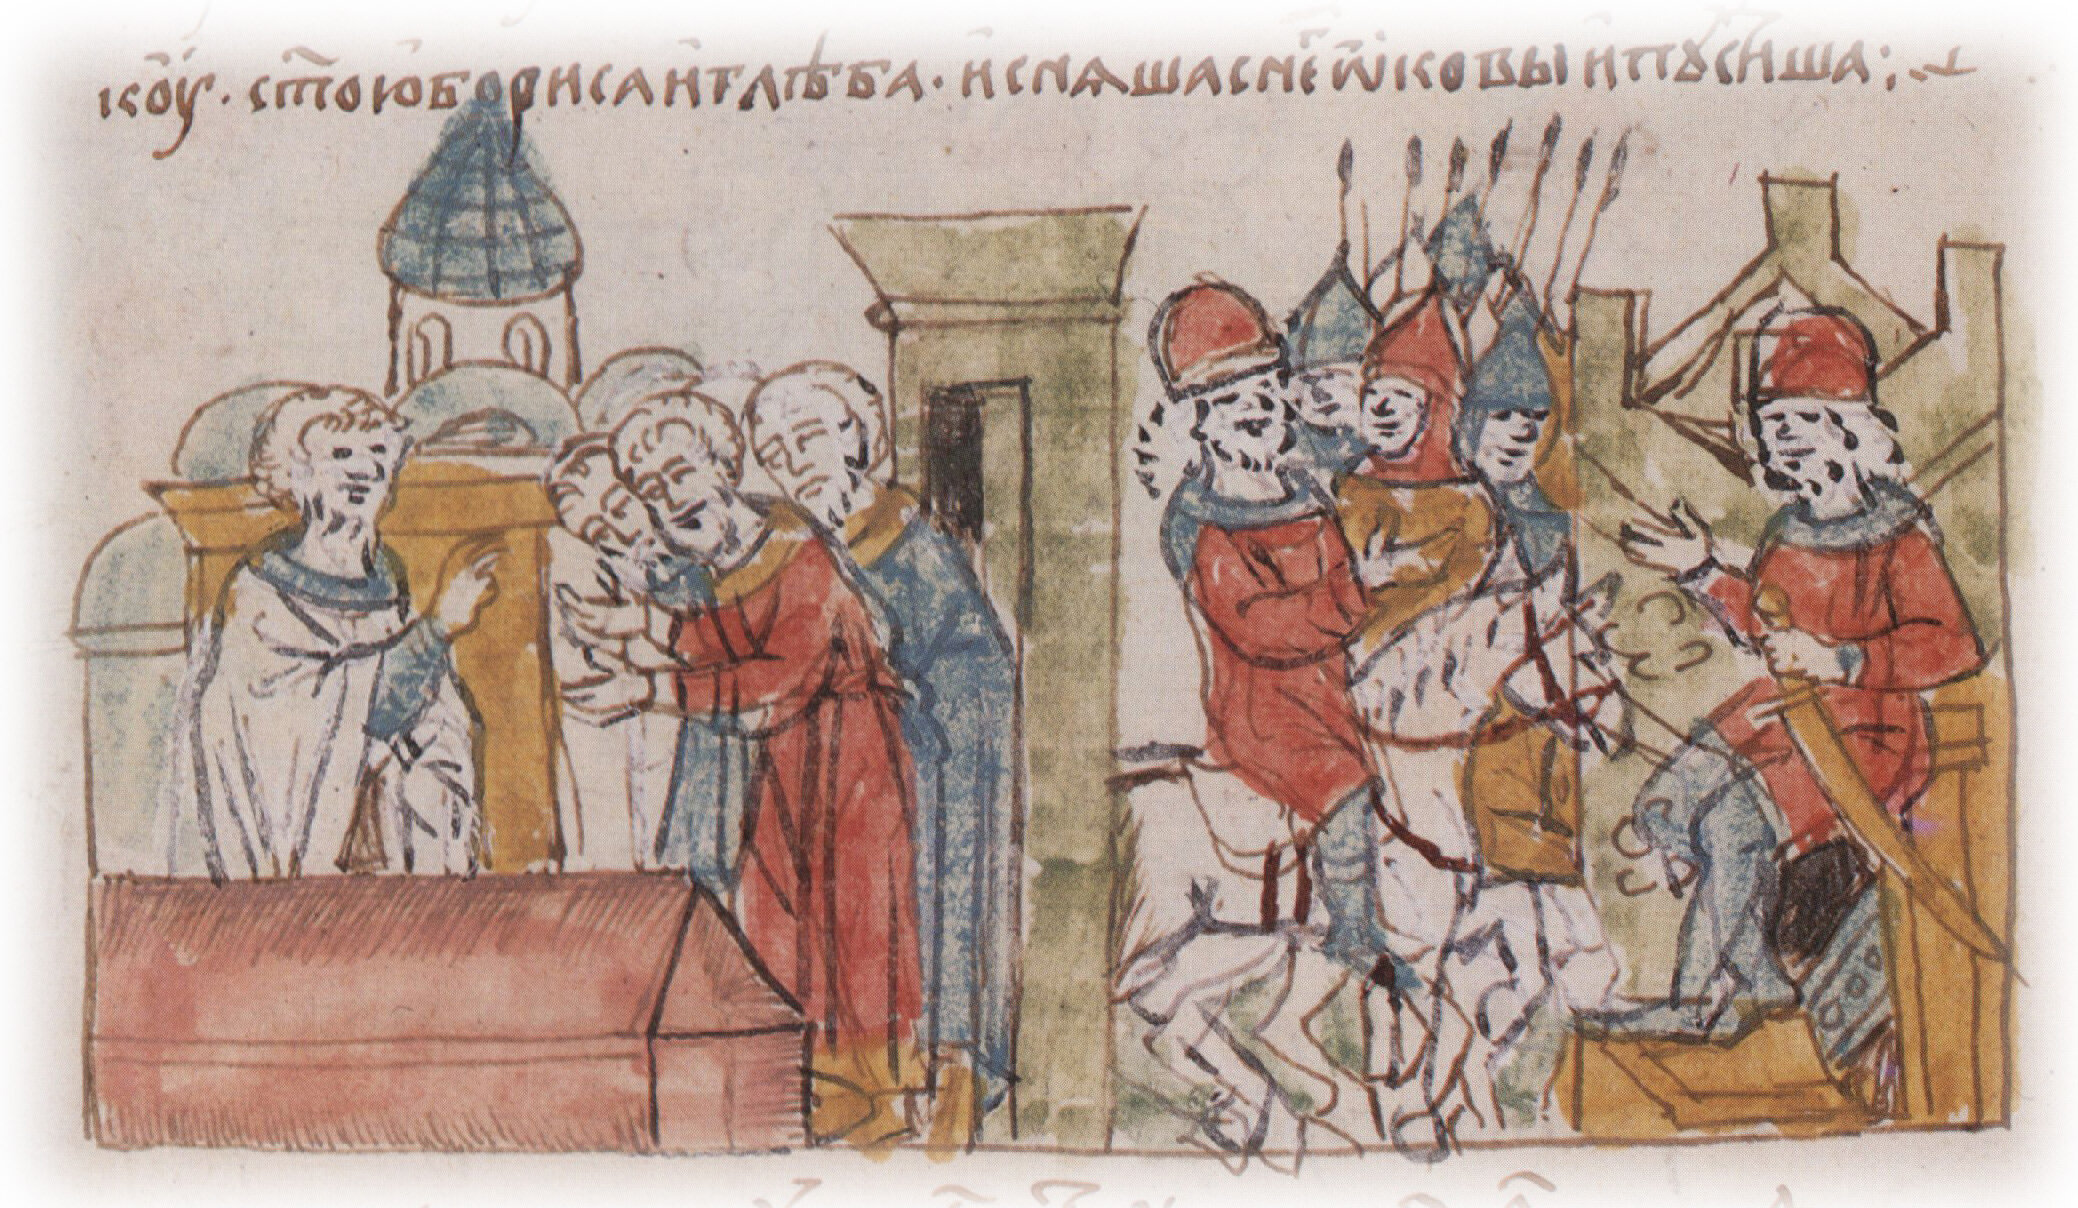 коу · ст҃ою бориса и глѣба · и снѧша с неⷢ ѡковы и пꙋсⷮиша ⁘